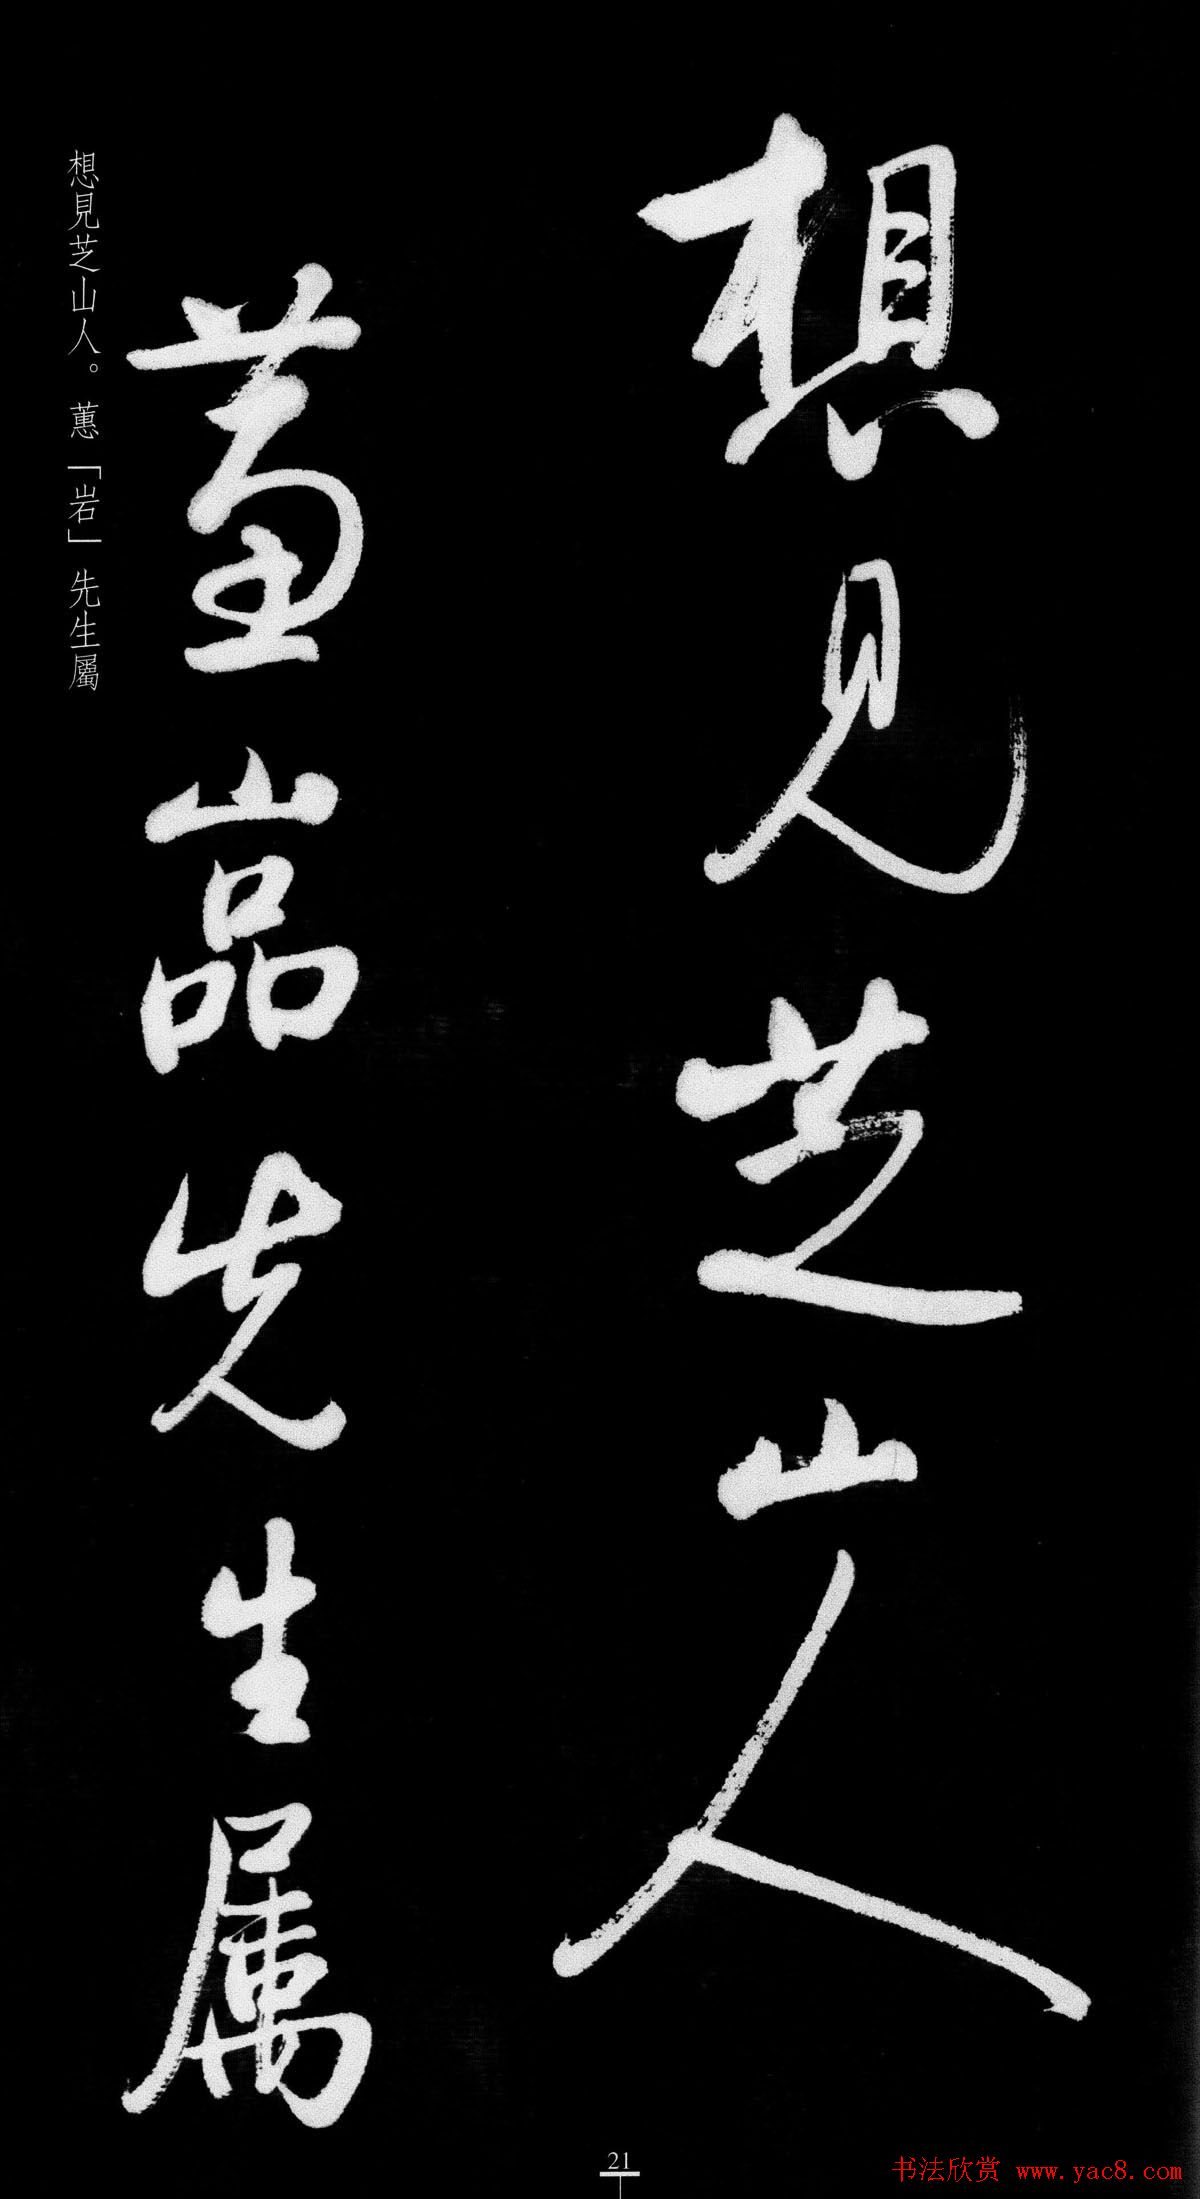 想見芝山人
蕙嵒先生属
想見芝山人。蕙「岩」先生屬
21
书法欣赏 www.yac8.com